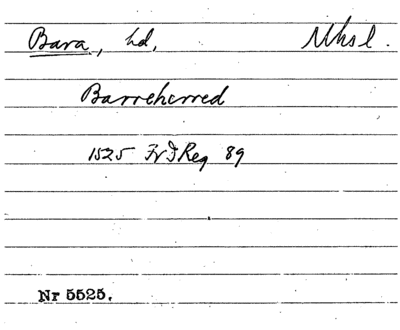 Bara, hd, Mhsl.
Barreherred
1525 FrIReg 89
Nr 5525.